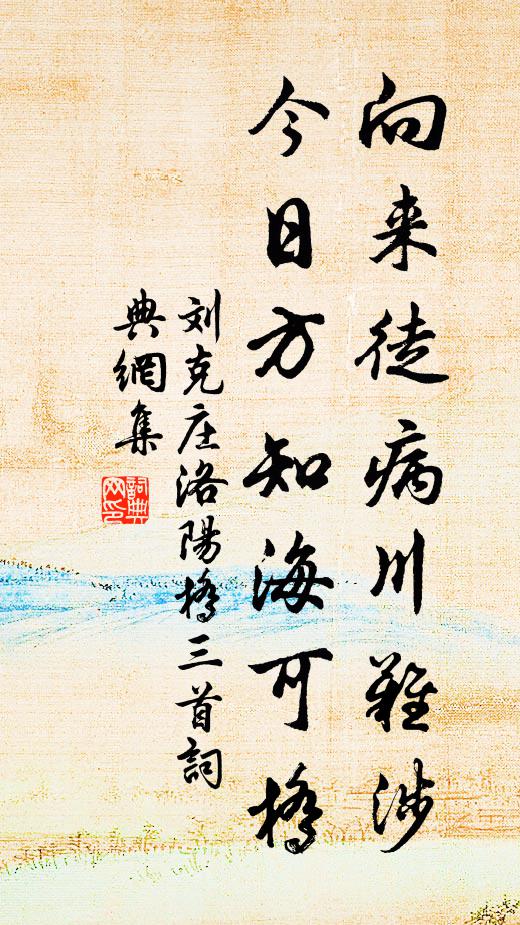 向来徒病川難涉
今日方知海可橋
刘克庄洛陽橋三首詞
典網集
詞典
网印